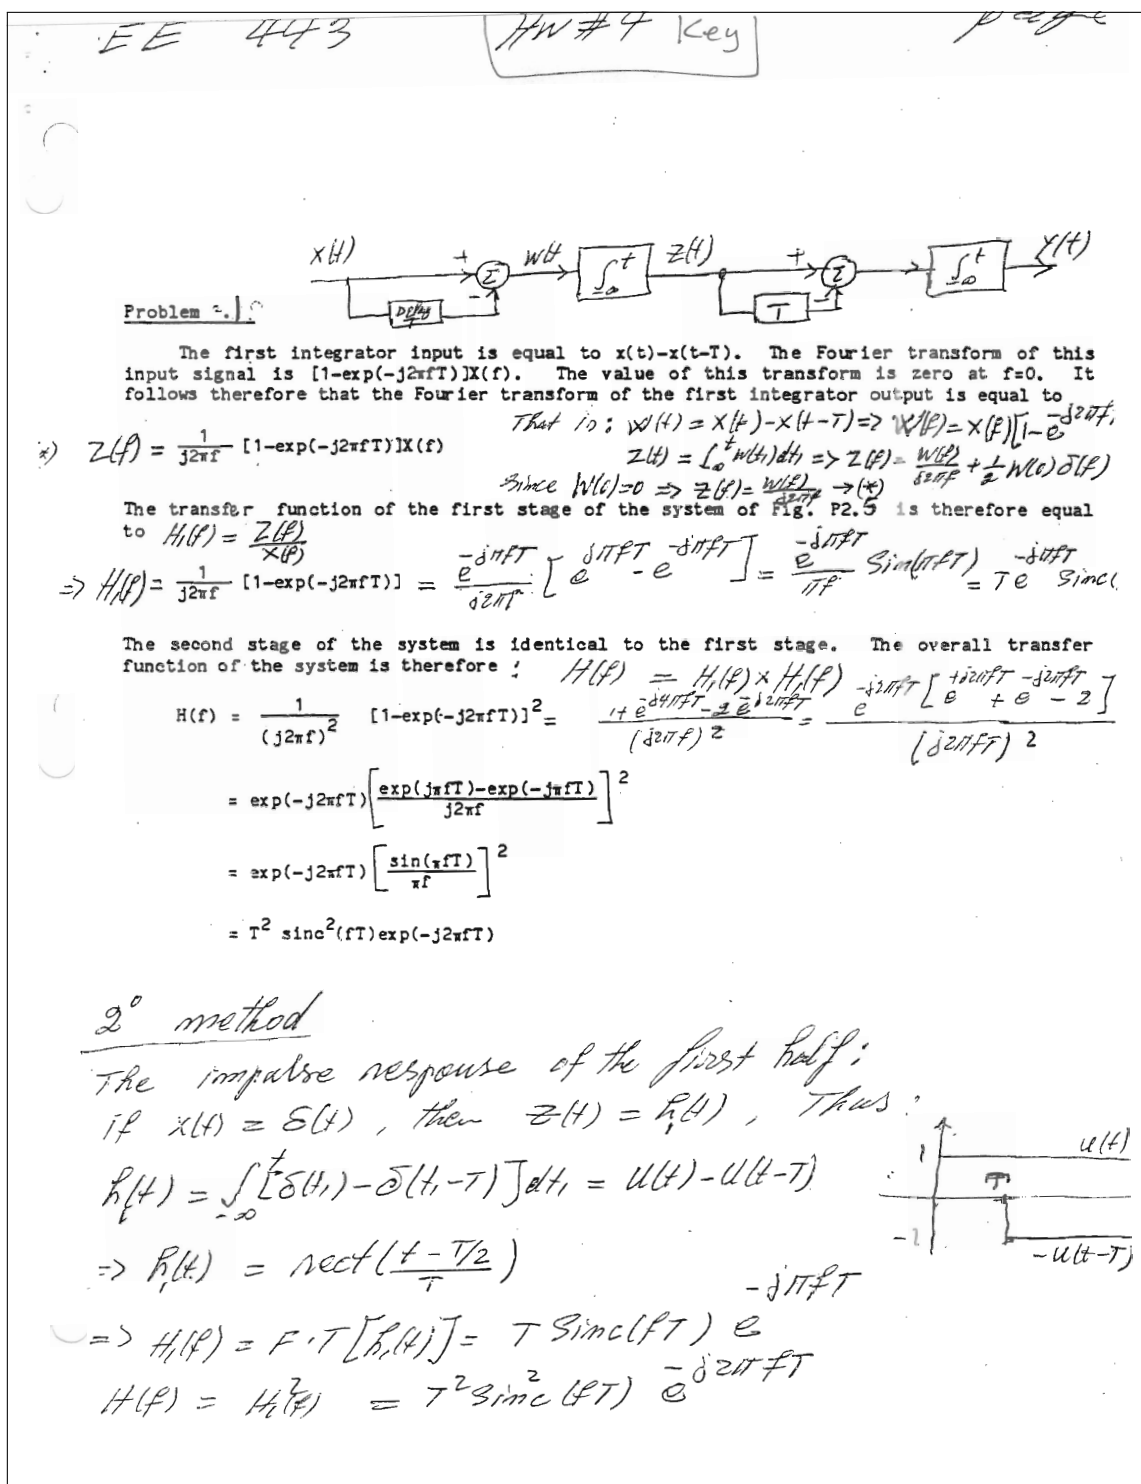 EE 443 HW #4 Key page
x(t) + Σ w(t) ∫_{-∞}^{t} z(t) + Σ ∫_{-∞}^{t} Y(t)
- Delay T - T
Problem 2.
The first integrator input is equal to x(t)-x(t-T). The Fourier transform of this
input signal is [1-exp(-j2πfT)]X(f). The value of this transform is zero at f=0. It
follows therefore that the Fourier transform of the first integrator output is equal to
That is: w(t) = x(t)-x(t-T) => W(f) = X(f)[1-e^{-j2πf
*) Z(f) = \frac{1}{j2πf} [1-exp(-j2πfT)]X(f)
z(t) = ∫_{-∞}^{t} w(t₁)dt₁ => Z(f) = \frac{W(f)}{j2πf} + \frac{1}{2} W(0) δ(f)
Since W(0)=0 => Z(f) = \frac{W(f)}{j2πf} → (*)
The transfer function of the first stage of the system of Fig. P2.5 is therefore equal
to H₁(f) = \frac{Z(f)}{X(f)}
=> H₁(f) = \frac{1}{j2πf} [1-exp(-j2πfT)] = \frac{e^{-jπfT}}{j2πf} [e^{jπfT} - e^{-jπfT}] = \frac{e^{-jπfT}}{πf} Sin(πfT) = T e^{-jπfT} Sinc(
The second stage of the system is identical to the first stage. The overall transfer
function of the system is therefore : H(f) = H₁(f) × H₁(f)
H(f) = \frac{1}{(j2πf)^2} [1-exp(-j2πfT)]^2 = \frac{1+e^{-j4πfT}-2e^{-j2πfT}}{(j2πf)^2} = \frac{e^{-j2πfT}[e^{+j2πfT} + e^{-j2πfT} - 2]}{(j2πfT)^2}
= exp(-j2πfT) [\frac{exp(jπfT)-exp(-jπfT)}{j2πf}]^2
= exp(-j2πfT) [\frac{sin(πfT)}{πf}]^2
= T^2 sinc^2(fT)exp(-j2πfT)
2° method
The impulse response of the first half:
if x(t) = δ(t), then z(t) = h₁(t), Thus:
h₁(t) = ∫_{-∞}^{t} [δ(t₁) - δ(t₁-T)]dt₁ = U(t) - U(t-T)
1 u(t)
T
-1 -U(t-T)
=> h₁(t) = rect(\frac{t-T/2}{T})
=> H₁(f) = F.T [h₁(t)] = T Sinc(fT) e^{-jπfT}
H(f) = H₁²(f) = T² Sinc²(fT) e^{-j2πfT}